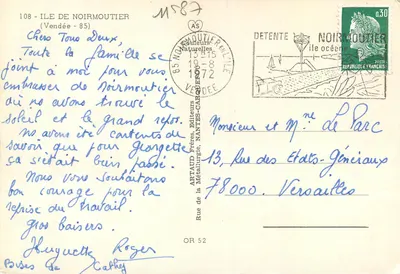 108 - ILE DE NOIRMOUTIER
(Vendée - 85)
11587
Chers Tous Deux,
Toute la famille se
joint à moi pour vous
embrasser de Noirmoutier
où nous avons trouvé le
soleil et le grand repos.
Nous avons été contents de
savoir que pour Georgette
ça s'était bien passé.
Nous vous souhaitons
bon courage pour la
reprise du travail.
Gros baisers.
Huguette Roger
Bises de Cathy
ARTAUD Frères, Editeurs
Rue de la Métallurgie, NANTES-CARQUEFOU
Couleurs
Naturelles
OR 52
85 NOIRMOUTIER EN L'ILE
1972
VENDÉE
DETENTE NOIRMOUTIER
île océane
0,30
REPUBLIQUE FRANÇAISE
Monsieur et Mme Le Parc
13, Rue des États-Généraux
78000. Versailles